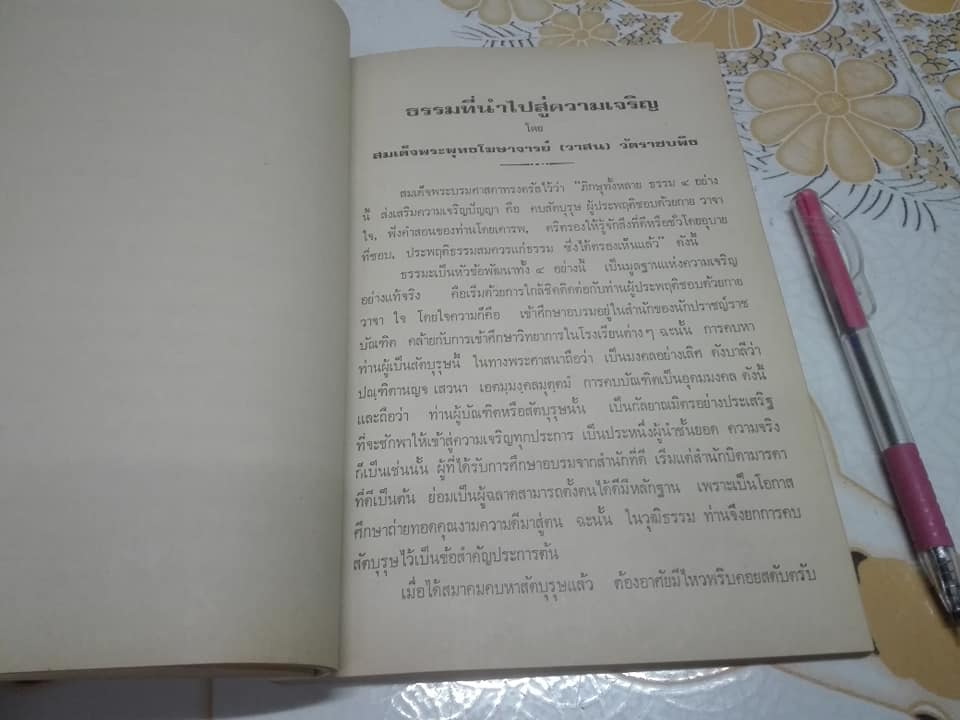 ธรรมที่นำไปสู่ความเจริญ
โดย
สมเด็จพระพุทธโฆษาจารย์ (วาสน) วัดราชบพิธ
สมเด็จพระบรมศาสดาทรงตรัสไว้ว่า "ภิกษุทั้งหลาย ธรรม ๔ อย่าง
นี้ ส่งเสริมความเจริญปัญญา คือ คบสัตบุรุษ ผู้ประพฤติชอบด้วยกาย วาจา
ใจ, ฟังคำสอนของท่านโดยเคารพ, ตริตรองให้รู้จักสิ่งที่ดีหรือชั่วโดยอุบาย
ที่ชอบ, ประพฤติธรรมสมควรแก่ธรรม ซึ่งได้ตรองเห็นแล้ว" ดังนี้
ธรรมะเป็นหัวข้อพัฒนาทั้ง ๔ อย่างนี้ เป็นมูลฐานแห่งความเจริญ
อย่างแท้จริง คือเริ่มด้วยการใกล้ชิดติดต่อกับท่านผู้ประพฤติชอบด้วยกาย
วาจา ใจ โดยใจความก็คือ เข้าศึกษาอบรมอยู่ในสำนักของนักปราชญ์ราช
บัณฑิต คล้ายกับการเข้าศึกษาวิทยาการในโรงเรียนต่างๆ ฉะนั้น การคบหา
ท่านผู้เป็นสัตบุรุษนี้ ในทางพระศาสนาถือว่า เป็นมงคลอย่างเลิศ ดังบาลีว่า
ปณฺฑิตานญฺจ เสวนา เอตมฺมงฺคลมุตฺตมํ การคบบัณฑิตเป็นอุดมมงคล ดังนี้
และถือว่า ท่านผู้บัณฑิตหรือสัตบุรุษนั้น เป็นกัลยาณมิตรอย่างประเสริฐ
ที่จะชักพาให้เข้าสู่ความเจริญทุกประการ เป็นประหนึ่งผู้นำชั้นยอด ความจริง
ก็เป็นเช่นนั้น ผู้ที่ได้รับการศึกษาอบรมจากสำนักที่ดี เริ่มแต่สำนักบิดามารดา
ที่ดีเป็นต้น ย่อมเป็นผู้ฉลาดสามารถตั้งตนได้ดีมีหลักฐาน เพราะเป็นโอกาส
ศึกษาถ่ายทอดคุณงามความดีมาสู่ตน ฉะนั้น ในวุฒิธรรม ท่านจึงยกการคบ
สัตบุรุษไว้เป็นข้อสำคัญประการต้น
เมื่อได้สมาคมคบหาสัตบุรุษแล้ว ต้องอาศัยมีไหวพริบคอยสดับตรับ